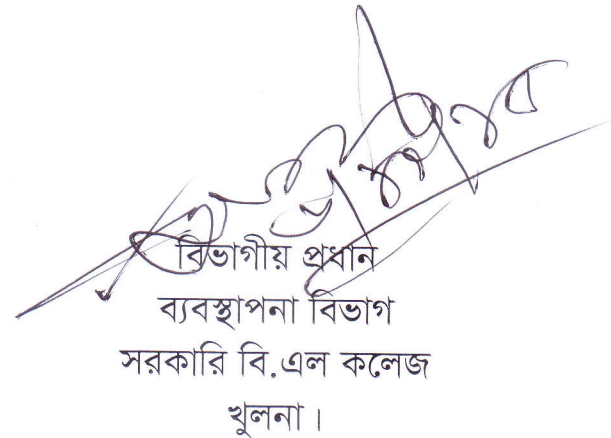 বিভাগীয় প্রধান
ব্যবস্থাপনা বিভাগ
সরকারি বি.এল কলেজ
খুলনা।